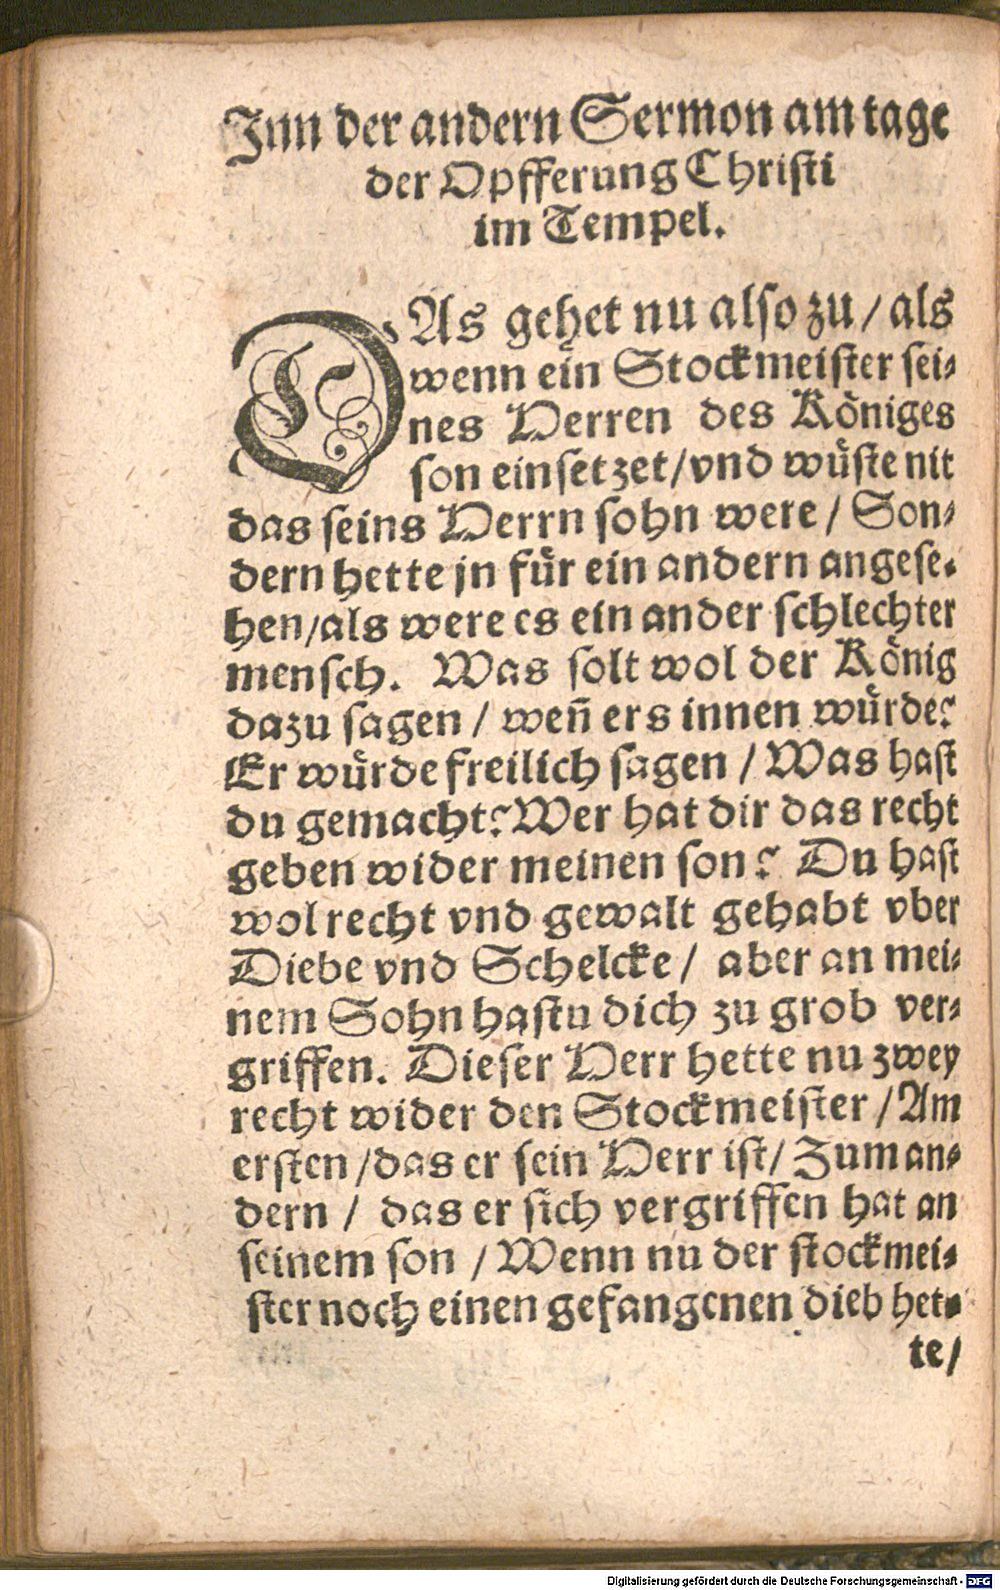 Inn der andern Sermon am tage
der Opfferung Christi
im Tempel.
DAs gehet nu also zu / als
wenn ein Stockmeister sei⸗
nes Herren des Königes
son einsetzet / vnd wüste nit
das seins Herrn sohn were / Son⸗
dern hette jn für ein andern angese⸗
hen / als were es ein ander schlechter
mensch. Was solt wol der König
dazu sagen / weñ ers innen würde?
Er würde freilich sagen / Was hast
du gemacht? Wer hat dir das recht
geben wider meinen son? Du hast
wol recht vnd gewalt gehabt vber
Diebe vnd Schelcke / aber an mei⸗
nem Sohn hastu dich zu grob ver⸗
griffen. Dieser Herr hette nu zwey
recht wider den Stockmeister / Am
ersten / das er sein Herr ist / Zum an⸗
dern / das er sich vergriffen hat an
seinem son / Wenn nu der stockmei⸗
ster noch einen gefangenen dieb het⸗
te /
Digitalisierung gefördert durch die Deutsche Forschungsgemeinschaft - DFG